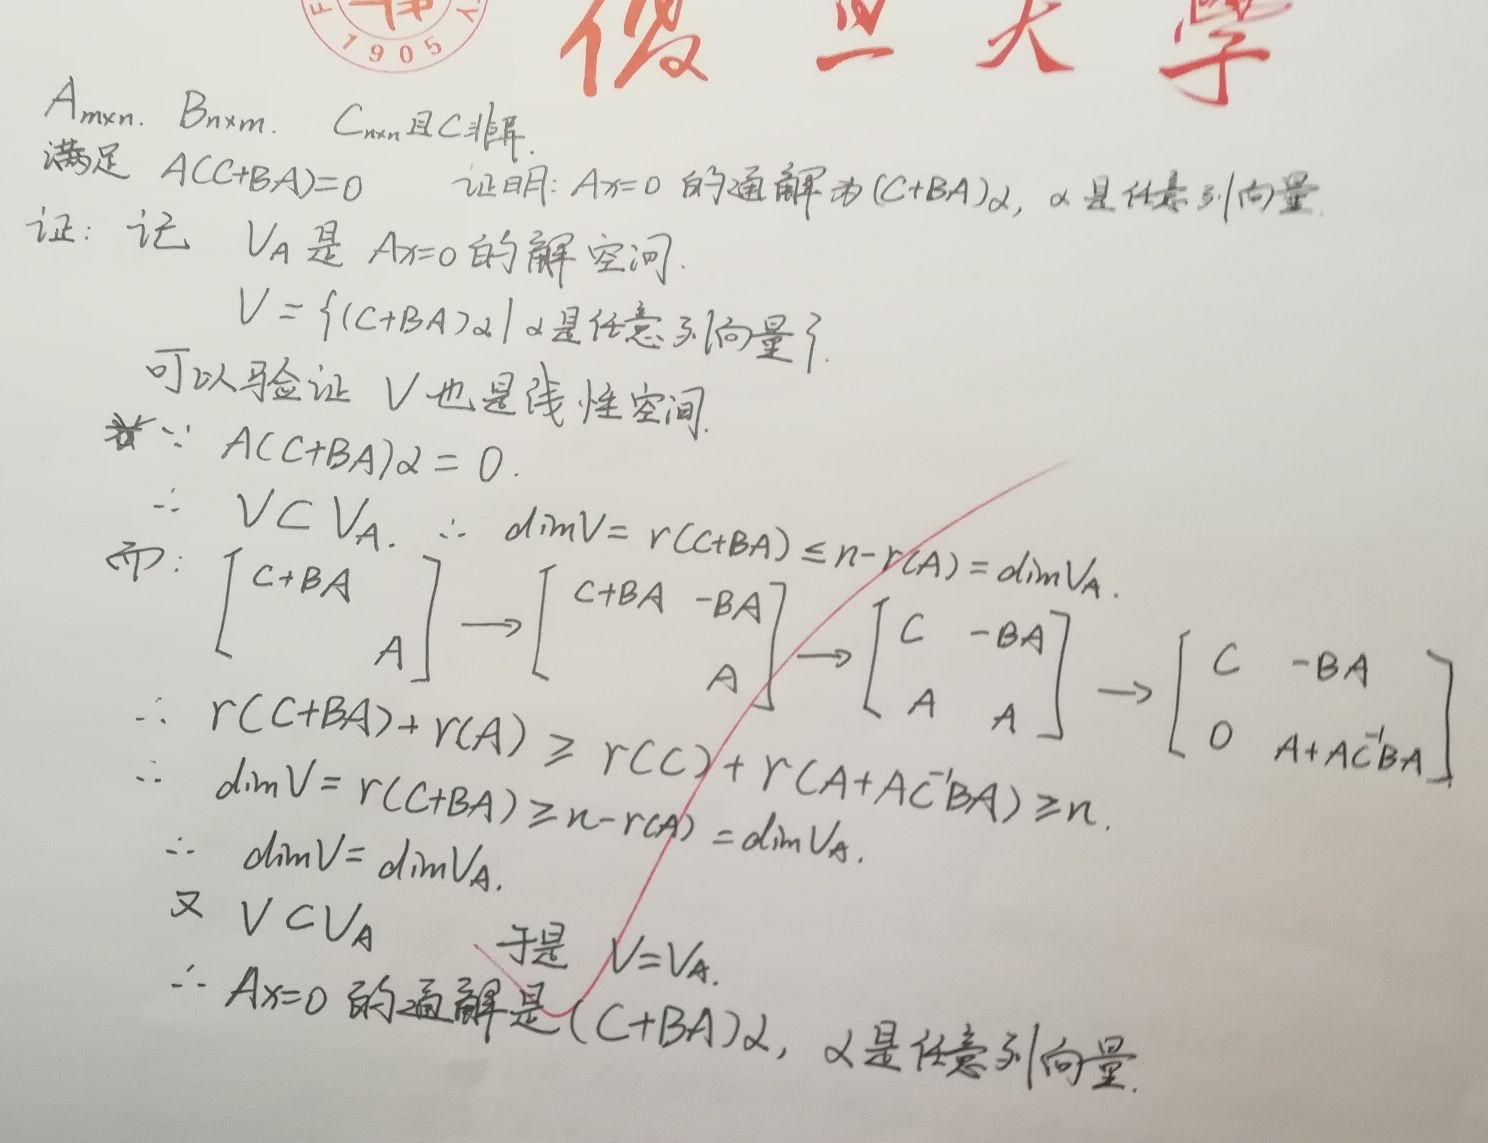 1905
復旦大學
Am×n. Bn×m. Cn×n且C非异.
满足 A(C+BA)=0 证明: Ax=0 的通解为(C+BA)α, α是任意列向量.
证: 记 VA是 Ax=0的解空间.
V={(C+BA)α|α是任意列向量}.
可以验证 V也是线性空间.
∵ A(C+BA)α=0.
∴ V⊂VA. ∴ dimV=r(C+BA)≤n-r(A)=dimVA.
而: [C+BA A] → [C+BA -BA A] → [C -BA A A] → [C -BA 0 A+AC⁻¹BA]
∴ r(C+BA)+r(A)≥r(C)+r(A+AC⁻¹BA)≥n.
∴ dimV=r(C+BA)≥n-r(A)=dimVA.
∴ dimV=dimVA.
又 V⊂VA 于是 V=VA.
∴ Ax=0的通解是(C+BA)α, α是任意列向量.